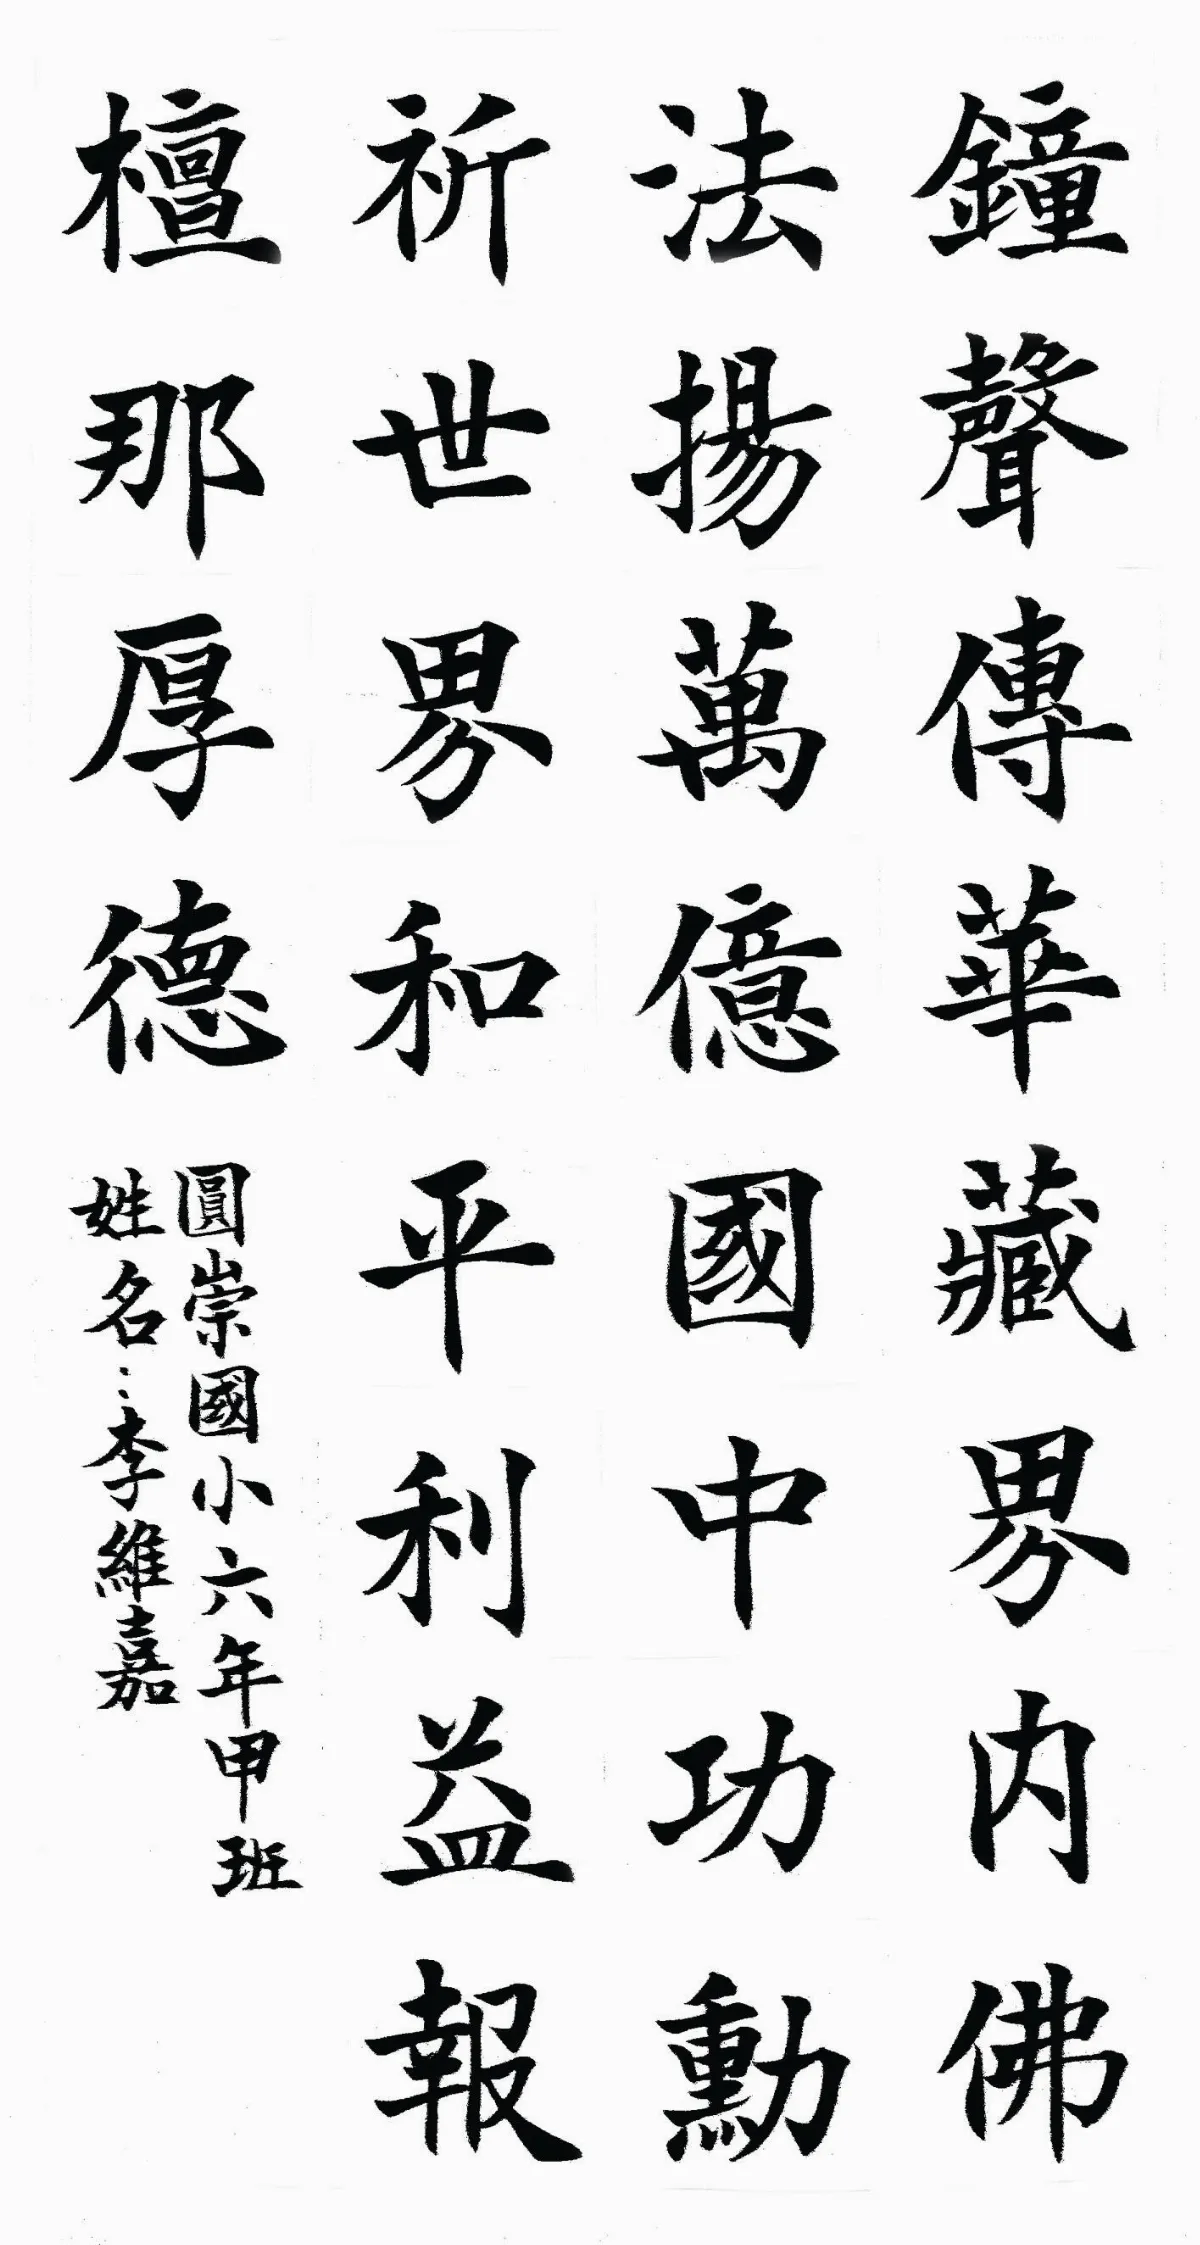 鐘聲傳華藏界內佛
法揚萬億國中功勳
祈世界和平利益報
檀那厚德
圓崇國小六年甲班
姓名：李維嘉